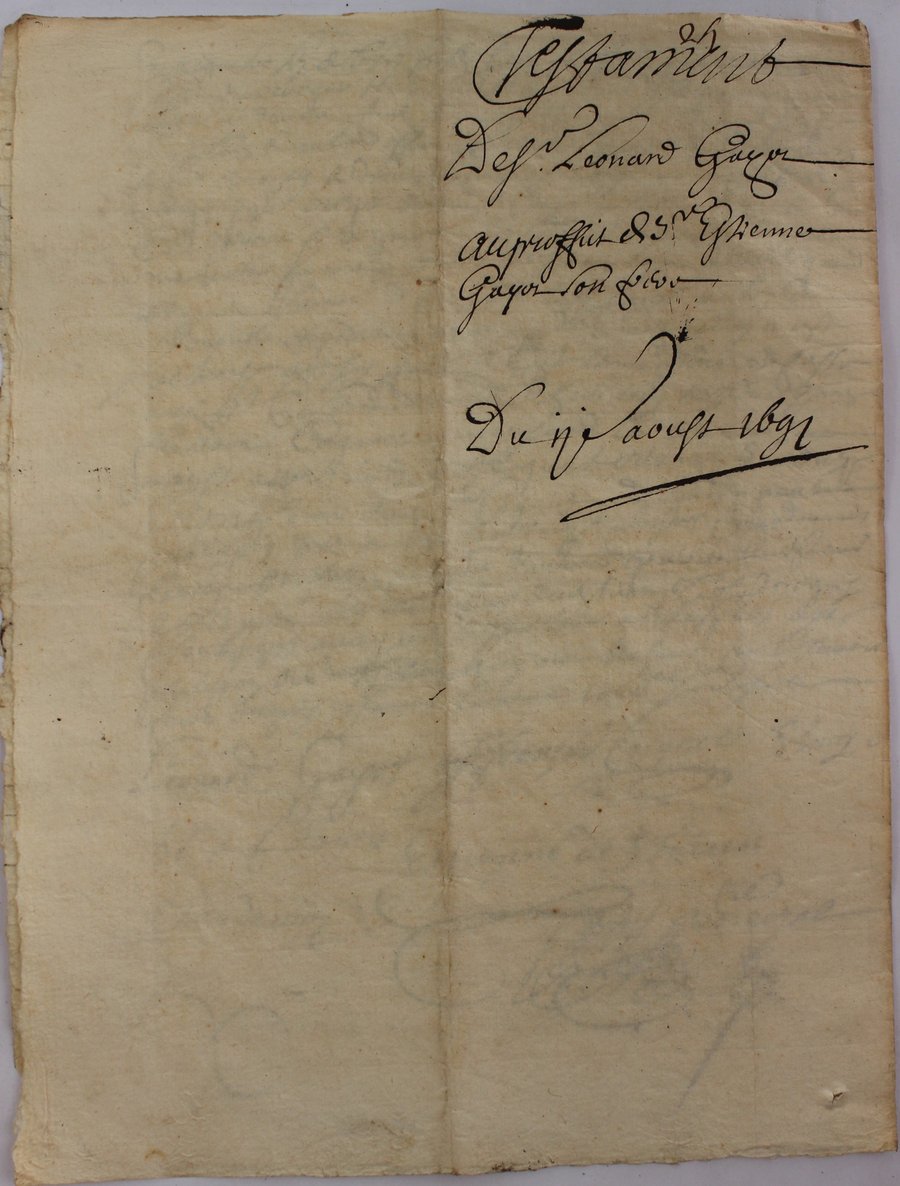 Testament
De Sr. Leonard Gayot
au proffit de Sr Estienne
Gayot son frere
Du ije aoust 1691